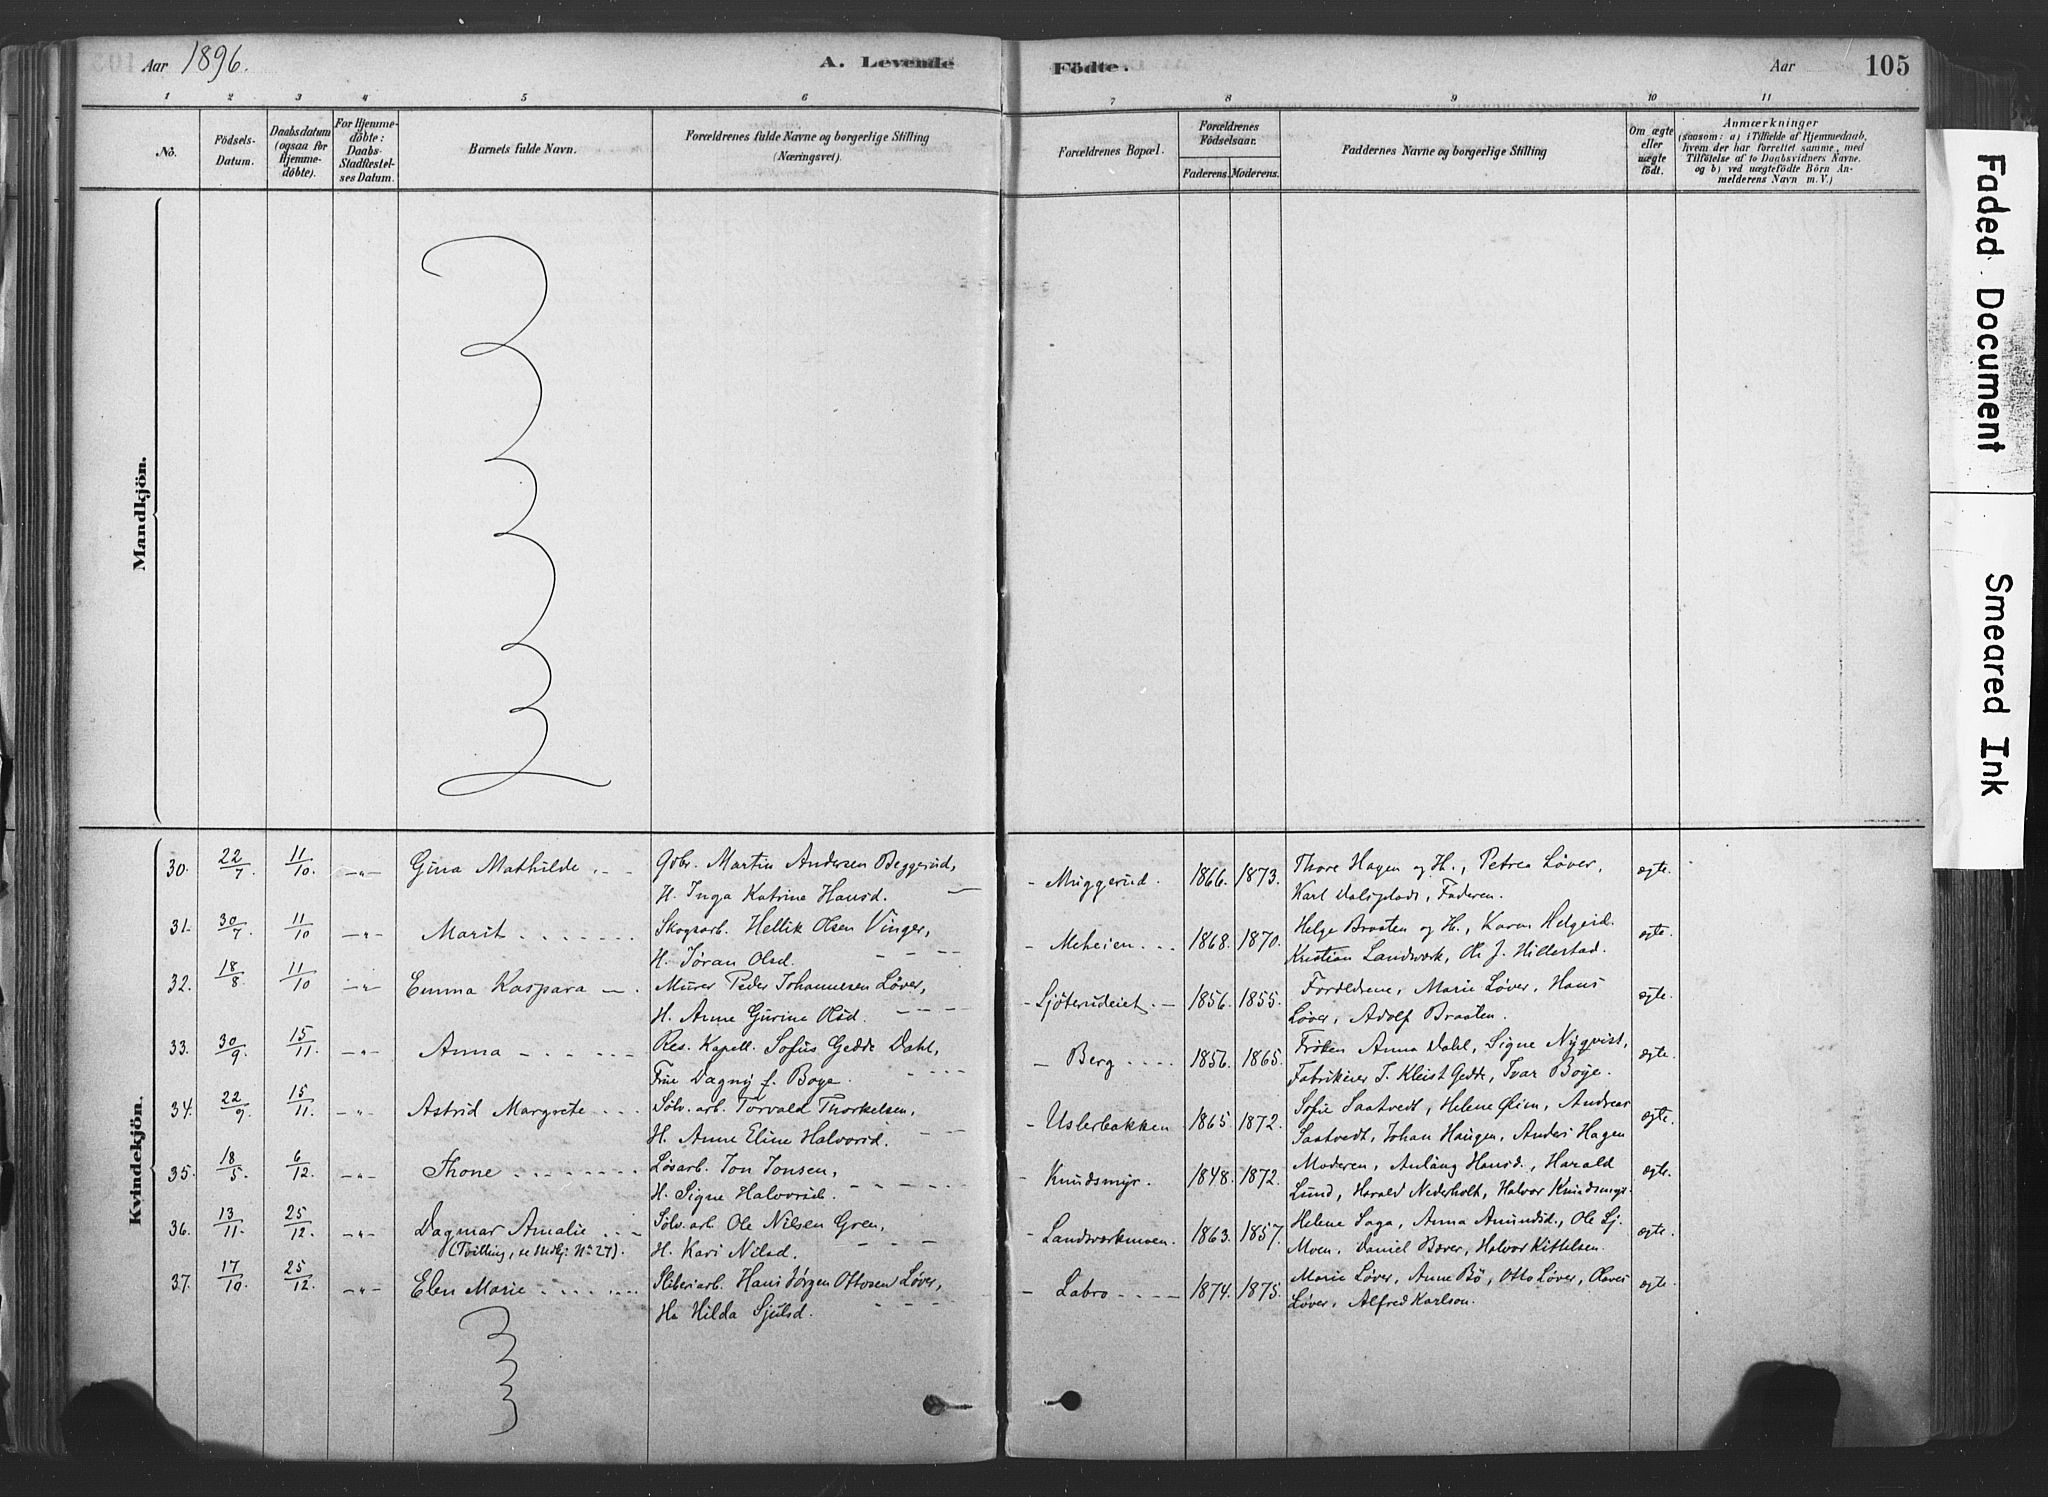 Aar 1896.
A. Levende Födte.
Aar
105
1 2 3 4 5 6 7 8 9 10 11
No.
Födsels-Datum.
Daabsdatum (ogsaa for Hjemmedöbte).
For Hjemmedöbte: Daabs-Stadfæstelses Datum.
Barnets fulde Navn.
Forældrenes fulde Navne og borgerlige Stilling (Næringsvei).
Forældrenes Bopæl.
Forældrenes Födselsaar.
Faderens. Moderens.
Faddernes Navne og borgerlige Stilling
Om ægte eller uægte födt.
Anmærkninger
(saasom: a) i Tilfælde af Hjemmedaab, hvem der har forrettet samme, med Tilföielse af to Daabsvidners Navne, og b) ved uægtefödte Börn Anmelderens Navn m. V.)
Mandkjön.
Kvindekjön.
30. 22/7 11/10 -"- Gina Mathilde Gbr. Martin Andersen Beggerud, - Muggerud. 1866. 1873. Thore Hagen og H., Petrea Løver, ægte.
H. Inga Katrine Hansd. Karl Dalsplads, Faderen.
31. 30/7 11/10 -"- Marit Skogsarb. Hellik Olsen Vinger, - Meheien 1868. 1870. Helge Braaten og H., Karen Helgesd. ægte.
H. Jøran Olsd. Kristian Landværk, Ole J. Hillestad.
32. 18/8 11/10 -"- Emma Kaspara Murer Peder Johannesen Løver, - Sjöterudeiet. 1856. 1855. Forældrene, Marie Løver, Hans ægte.
H. Anne Gurine Olsd. Løver, Adolf Braaten.
33. 30/9 15/11. -"- Anna Res. Kapell. Sofus Gedde Dahl, - Berg 1856. 1865. Frøken Anna Dahl, Signe Nyqvist, ægte.
Frue Dagny f. Boye. Fabrikeier T. Kleist Gedde, Ivar Boye.
34. 22/9. 15/11. -"- Astrid Margrete Sölv. arb. Torvald Thorkelsen, - Uslerbakken 1865. 1872. Sofie Saatvedt, Helene Øim, Andreas ægte.
H. Anne Eline Halvorsd. Saatvedt, Johan Haugen, Anders Hagen
35. 18/5. 6/12. -"- Thone Løsarb. Jon Jonsen, - Knudsmyr. 1848. 1872. Moderen, Anlaug Hansd., Harald ægte.
H. Signe Halvorsd. Lund, Harald Nederholt, Halvor Knudsmyr.
36. 13/11. 25/12. -"- Dagmar Amalie Sölv. arb. Ole Nilsen Gren, - Landsværkmoen. 1863. 1857. Helene Saga, Anna Amundsd., Ole Sj. ægte.
(Tvilling, se Mdkj. No 27). H. Kari Nilsd. Moen, Daniel Bæver, Halvor Kittelsen.
37. 17/10. 25/12. -"- Elen Marie Sliberiarb. Hans Jørgen Ottosen Løver, - Labro 1874. 1875. Marie Løver, Anne Bö, Otto Løver, Olaves ægte.
H. Hilda Sjulsd. Løver, Alfred Karlson.
Faded Document
Smeared Ink